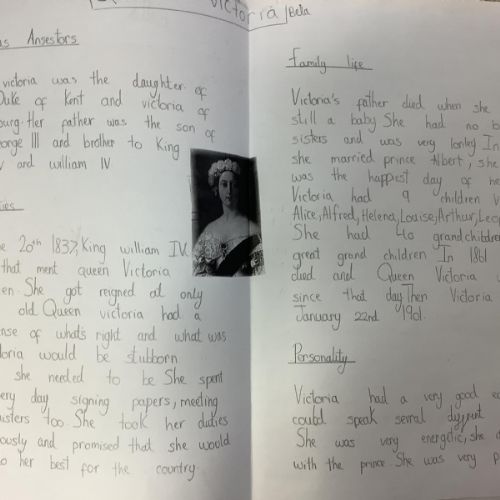 Victoria / Beta
Ansestors
victoria was the daughter of
Duke of Kent and victoria of
burg. Her father was the son of
orge III and brother to King
V and william IV.
ies
e 20th 1837, King william IV.
that ment queen Victoria
en. She got reigned at only
old. Queen victoria had a
nse of what's right and what was
oria would be stubborn
she needed to be She spent
ery day signing papers, meeting
isters too. She took her duties
ously and promised that she would
o her best for the country
Family life
Victoria's father died when she
still a baby She had no b
sisters and was very lonley In
she married prince Albert, she
was the happiest day of he
Victoria had 9 children V
Alice, Alfred, Helena, Louise, Arthur, Leo
She had 40 grandchildren
great grand children In 1861
died and Queen Victoria
since that day. Then Victoria
January 22nd 1901.
Personality
Victoria had a very good
could speak sevral
She was very energitic, she
with the prince. She was very p